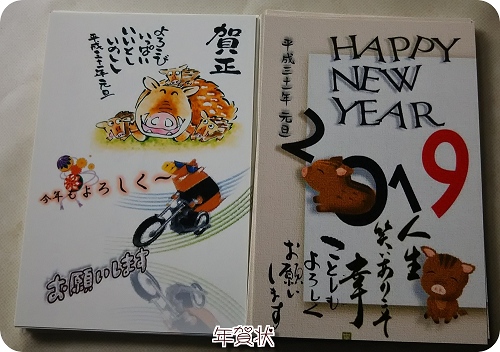 賀正
よろこび
いっぱい
いいとし
いのしし
平成三十一年 元旦
今年もよろしく〜
お願いします
HAPPY
NEW
YEAR
2019
平成三十一年 元旦
人生
笑いありこそ
幸
ことしも
よろしく
お願い
します
年賀状